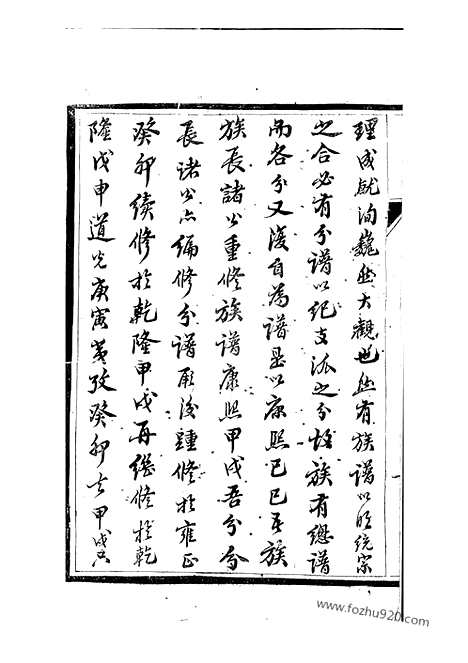 理成猷洵巍然大觀也然有族譜以明統宗
之合必有分譜以紀支派之分恠族有總譜
而各分又復自為譜是以康熙己巳吾族
族長諸公重修族譜康熙甲戌吾分分
長諸公亦編修分譜厥後踵修於雍正
癸卯續修於乾隆甲戌再繼修於乾
隆戊申道光庚寅考癸卯去甲戌只
www.fozhu920.com